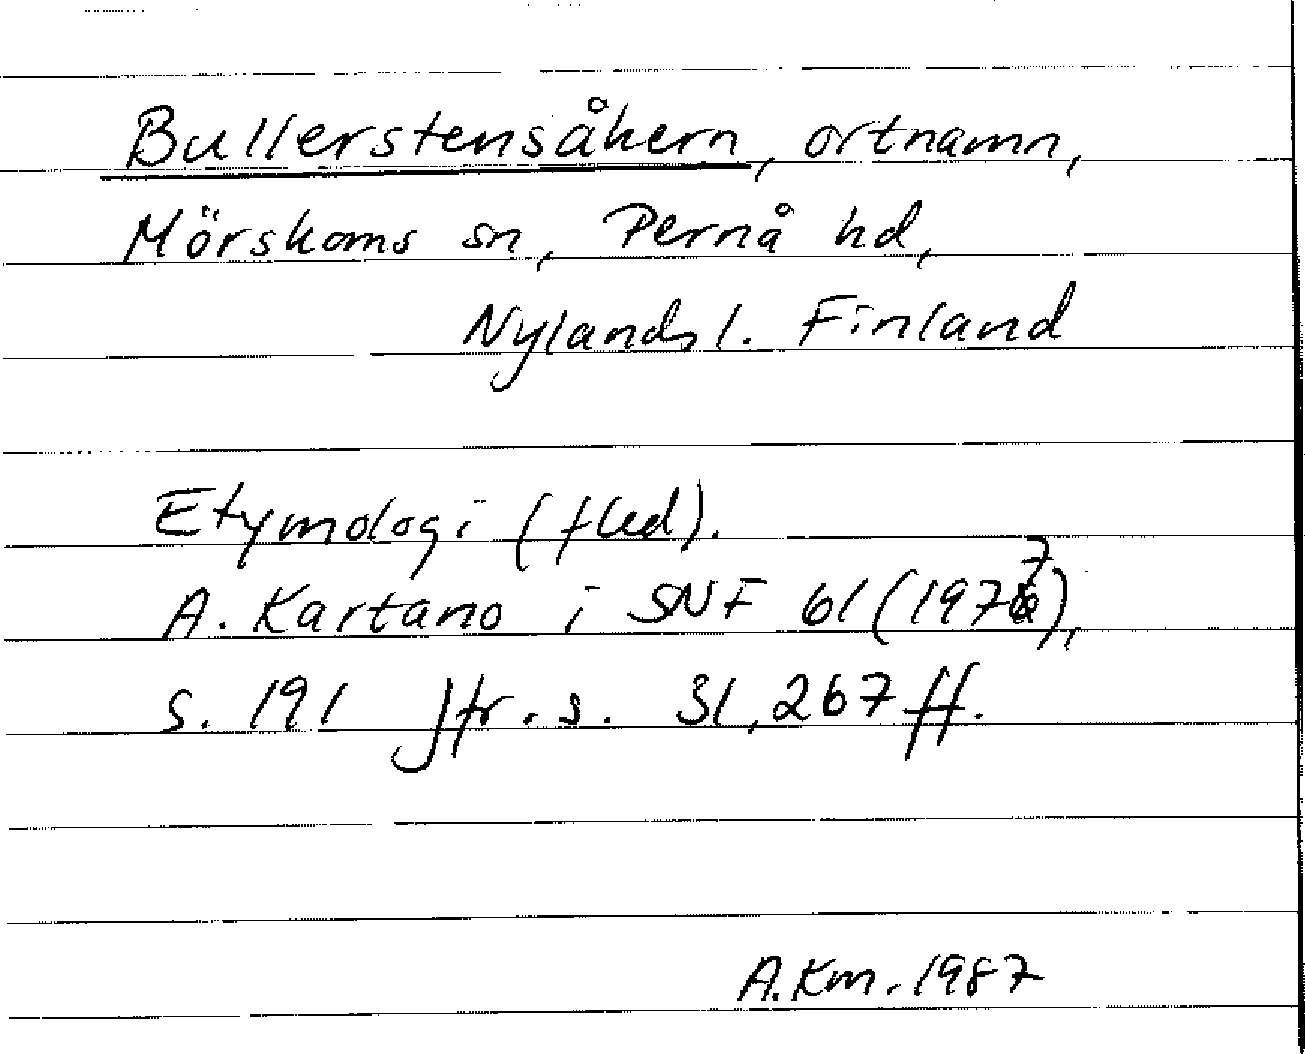 Bullerstensåkern, ortnamn,
Mörskoms sn, Pernå hd,
Nylands l. Finland
Etymologi (fled).
A. Kartano i SNF 61 (1977),
s. 191 Jfr. s. 31, 267 ff.
A. Km. 1987